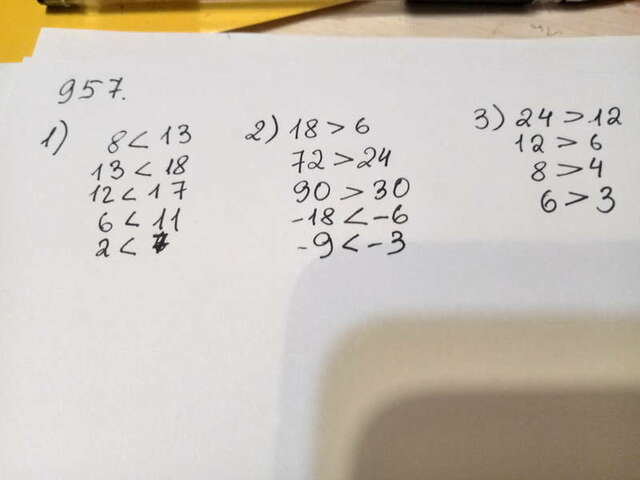 957.
1) 8 < 13
13 < 18
12 < 17
6 < 11
2 < 7
2) 18 > 6
72 > 24
90 > 30
-18 < -6
-9 < -3
3) 24 > 12
12 > 6
8 > 4
6 > 3